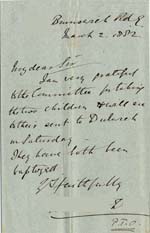 March 2. 1882
My dear Sir
I am very grateful
to the Committee for taking
the two children
sent to Dulwich
on Saturday
They have both been
baptized
Yrs faithfully
P.T.O.